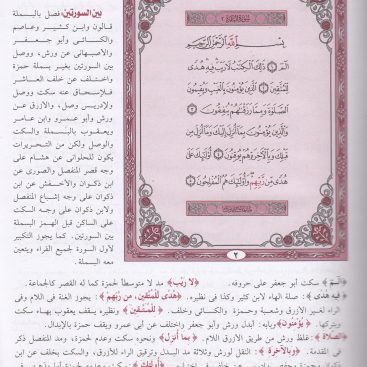 سورة البقرة ٢
بِسْمِ اللَّهِ الرَّحْمَٰنِ الرَّحِيمِ
الٓمٓ ۝١ ذَٰلِكَ الْكِتَٰبُ لَا رَيْبَ فِيهِ هُدًى
لِّلْمُتَّقِينَ ۝٢ الَّذِينَ يُؤْمِنُونَ بِالْغَيْبِ وَيُقِيمُونَ
الصَّلَوٰةَ وَمِمَّا رَزَقْنَٰهُمْ يُنفِقُونَ ۝٣
وَالَّذِينَ يُؤْمِنُونَ بِمَا أُنزِلَ إِلَيْكَ وَمَا أُنزِلَ مِن
قَبْلِكَ وَبِالْآخِرَةِ هُمْ يُوقِنُونَ ۝٤ أُولَٰئِكَ عَلَىٰ
هُدًى مِّن رَّبِّهِمْ وَأُولَٰئِكَ هُمُ الْمُفْلِحُونَ ۝٥
٢
بين السورتين: فصل بالبسملة
قالون وابن كثير وعاصم
والكسائي وأبو جعفر
والأصبهاني عن ورش، ووصل
بين السورتين بغير بسملة حمزة
واختلف عن خلف العاشر
فلإسحاق عنه سكت ووصل
ولإدريس وصل، والأزرق عن
ورش وأبو عمرو وابن عامر
ويعقوب بالبسملة والسكت
والوصل ولكن من التحريرات
يكون للحلواني عن هشام على
وجه قصر المنفصل والصوري عن
ابن ذكوان والأخفش عن ابن
ذكوان على وجه إشباع المتصل
ولابن ذكوان على وجه السكت
على الساكن قبل الهمز البسملة
بين السورتين. كما يجوز التكبير
لأول السورة لجميع القراء ويتعين
معه البسملة.
﴿الٓمٓ﴾ سكت أبو جعفر على حروفه. ﴿لا ريب﴾ مد لا متوسطاً لحمزة كما له القصر كالجماعة.
﴿فيه هدى﴾: صلة الهاء لابن كثير وكذا في نظيره. ﴿هدى للمتقين، من ربهم﴾: يجوز الغنة في اللام وفي
الراء لغير الأزرق وشعبة وحمزة والكسائي وخلف. ﴿للمتقين﴾ ونظيره يقف يعقوب بهاء سكت
وبتركها. ﴿يؤمنون﴾ وبابه: أبدل ورش وأبو جعفر واختلف عن أبي عمرو ويقف حمزة بالإبدال.
﴿الصلاة﴾: غلظ ورش من طريق الأزرق اللام. ﴿بما أنزل﴾ ونحوه سكت وعدم لحمزة، ومد المنفصل ذكر
في المقدمة. ﴿وبالآخرة﴾: النقل لورش وثلاثة مد البدل وترقيق الراء للأزرق، والسكت بخلف عن ابن